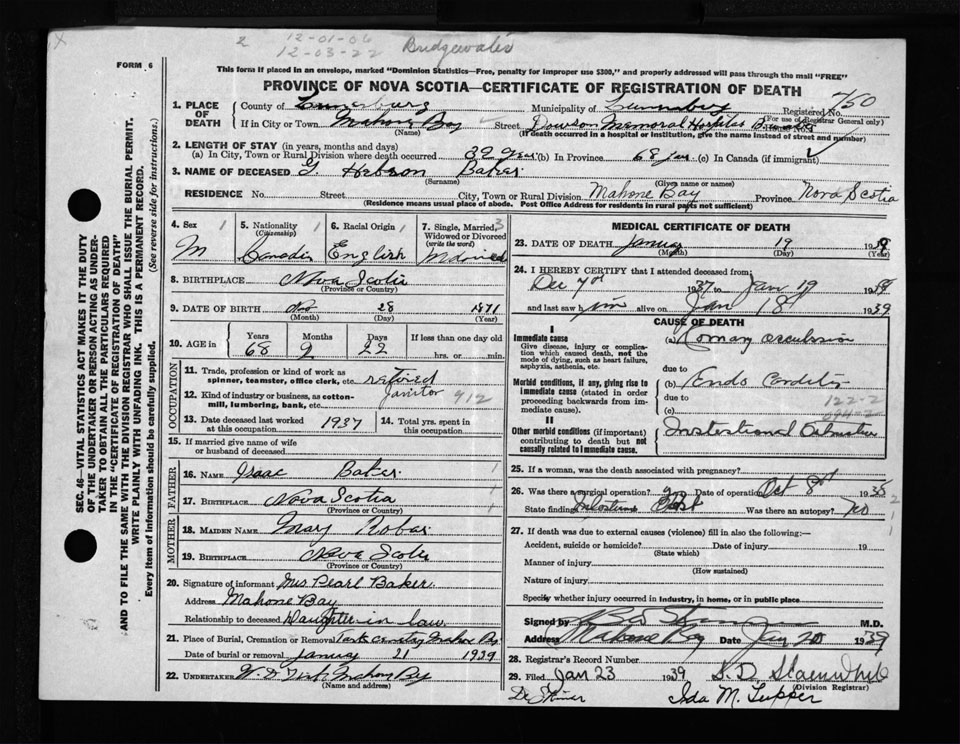 2 12-01-06
12-03-22 Bridgewater
FORM 6
This form if placed in an envelope, marked "Dominion Statistics—Free, penalty for improper use $300," and properly addressed will pass through the mail "FREE"
PROVINCE OF NOVA SCOTIA—CERTIFICATE OF REGISTRATION OF DEATH
750
1. PLACE OF DEATH County of Lunenburg Municipality of Lunenburg Registered No.
(For use of Registrar General only)
If in City or Town Mahone Bay Street Dawson Memorial Hospital
(Name) (If death occurred in a hospital or institution, give the name instead of street and number)
2. LENGTH OF STAY (in years, months and days)
(a) In City, Town or Rural Division where death occurred 39 years (b) In Province 68 yrs (c) In Canada (if immigrant)
3. NAME OF DECEASED G. Baker
(Surname) (Given name or names)
RESIDENCE No. Street City, Town or Rural Division Mahone Bay Province Nova Scotia
(Residence means usual place of abode. Post Office Address for residents in rural parts not sufficient)
4. Sex 1 M
5. Nationality (Citizenship) 1 Canadian
6. Racial Origin 1 English
7. Single, Married, Widowed or Divorced (write the word) 3
8. BIRTHPLACE Nova Scotia
(Province or Country)
9. DATE OF BIRTH 28 1871
(Month) (Day) (Year)
10. AGE in Years Months Days If less than one day old
68 2 22 hrs. or min.
OCCUPATION
11. Trade, profession or kind of work as spinner, teamster, office clerk, etc. retired
janitor 912
12. Kind of industry or business, as cotton-mill, lumbering, bank, etc.
13. Date deceased last worked at this occupation 1937
14. Total yrs. spent in this occupation
15. If married give name of wife or husband of deceased
FATHER
16. NAME Isaac Baker 1
17. BIRTHPLACE Nova Scotia 1
(Province or Country)
MOTHER
18. MAIDEN NAME Mary
19. BIRTHPLACE Nova Scotia
(Province or Country)
20. Signature of informant Mrs. Pearl Baker
Address Mahone Bay
Relationship to deceased Daughter in law
21. Place of Burial, Cremation or Removal Mahone Bay
Date of burial or removal January 21 1939
22. UNDERTAKER Mahone Bay
(Name and address)
MEDICAL CERTIFICATE OF DEATH
23. DATE OF DEATH January 19 1939
(Month) (Day) (Year)
24. I HEREBY CERTIFY that I attended deceased from:
Dec 7th 1937 to Jan 19 1939
and last saw him alive on Jan 18 1939
CAUSE OF DEATH
I
Immediate cause
Give disease, injury or complication which caused death, not the mode of dying, such as heart failure, asphyxia, asthenia, etc.
(a) Coronary occlusion
due to
Morbid conditions, if any, giving rise to immediate cause (stated in order proceeding backwards from immediate cause).
(b) Endo Carditis
due to
122-2
(c)
II
Other morbid conditions (if important) contributing to death but not causally related to immediate cause.
25. If a woman, was the death associated with pregnancy?
26. Was there a surgical operation? Date of operation Oct 8th 1938
State finding Was there an autopsy? no
27. If death was due to external causes (violence) fill in also the following:—
Accident, suicide or homicide? Date of injury 19
(State which)
Manner of injury
(How sustained)
Nature of injury
Specify whether injury occurred in industry, in home, or in public place
Signed by M.D.
Address Mahone Bay Date Jan 20 1939
28. Registrar's Record Number
29. Filed Jan 23 1939
(Division Registrar)
Ida M. Tupper
SEC. 46—VITAL STATISTICS ACT MAKES IT THE DUTY OF THE UNDERTAKER OR PERSON ACTING AS UNDERTAKER TO OBTAIN ALL THE PARTICULARS REQUIRED IN THE "CERTIFICATE OF REGISTRATION OF DEATH"
AND TO FILE THE SAME WITH THE DIVISION REGISTRAR WHO SHALL ISSUE THE BURIAL PERMIT.
WRITE PLAINLY WITH UNFADING INK. THIS IS A PERMANENT RECORD.
Every item of information should be carefully supplied. (See reverse side for instructions.)